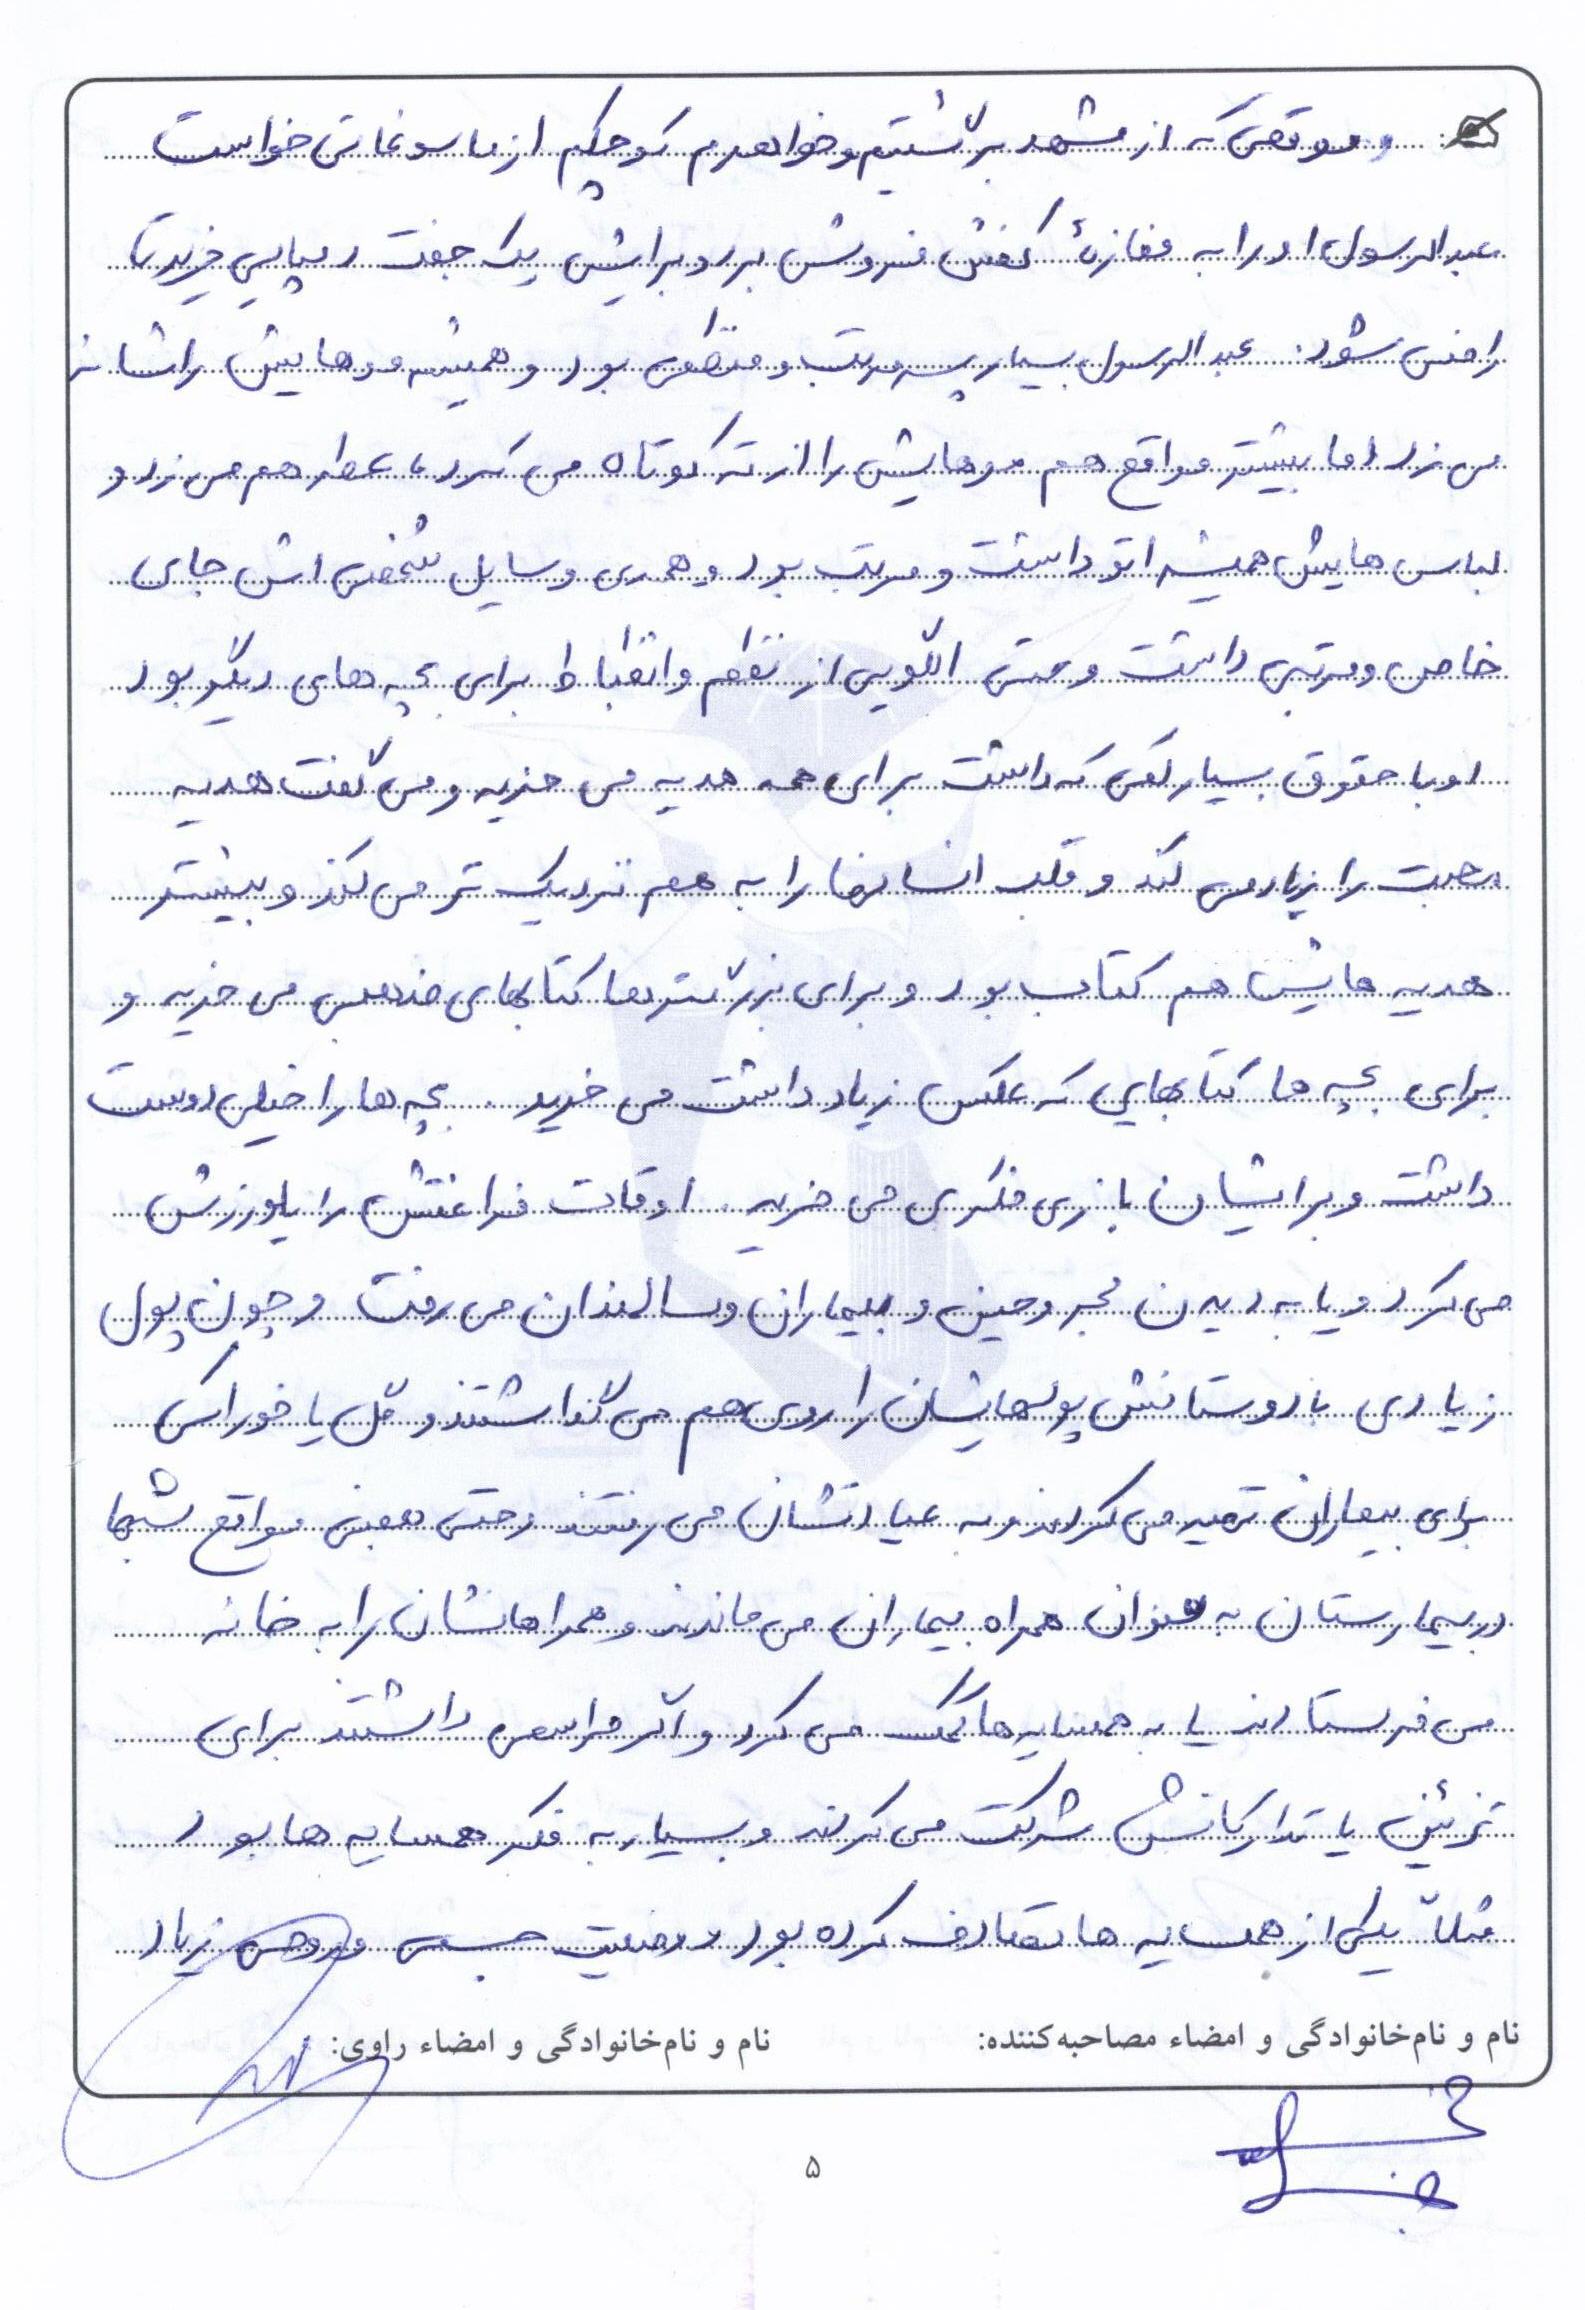 و موقعی که از مشهد برگشتیم و خواهرم کوچکم از ما سوغاتی خواست
عبدالرسول او را به مغازهٔ کفش فروشی برد و برایش یک جفت دمپایی خرید تا
راضی شود. عبدالرسول بسیار پسر مرتب و منظمی بود و همیشه موهایش را شانه
می زد اما بیشتر مواقع هم موهایش را از ته کوتاه می کرد، عطر هم می زد و
لباس هایش همیشه اتو داشت و مرتب بود و همه ی وسایل شخصی اش جای
خاص و مرتبی داشت و حتی الگویی از نظم و انظباط برای بچه های دیگر بود
او با حقوق بسیار کمی که داشت برای همه هدیه می خرید و می گفت هدیه
محبت را زیاد می کند و قلب انسانها را به هم نزدیک تر می کند و بیشتر
هدیه هایش هم کتاب بود و برای بزرگترها کتابهای مذهبی می خرید و
برای بچه ها کتابهایی که عکس زیاد داشت می خرید. بچه ها را خیلی دوست
داشت و برایشان بازی فکری می خرید. اوقات فراغتش را یا ورزش
می کرد و یا به دیدن مجروحین و بیماران و سالمندان می رفت و چون پول
زیادی با دوستانش پولهایشان را روی هم می گذاشتند و گل یا خوراکی
برای بیماران تهیه می کردند و به عیادتشان می رفتند و حتی بعضی مواقع شبها
در بیمارستان به عنوان همراه بیماران می ماندند و همراهانشان را به خانه
می فرستادند یا به همسایه ها کمک می کرد و اگر مراسمی داشتند برای
تزئین یا تدارکاتش شرکت می کردند و بسیار به فکر همسایه ها بود
مثلاً یکی از همسایه ها تصادف کرده بود و وضعیت جسمی و روحی زیاد
نام و نام‌خانوادگی و امضاء مصاحبه‌کننده:
نام و نام‌خانوادگی و امضاء راوی:
۵